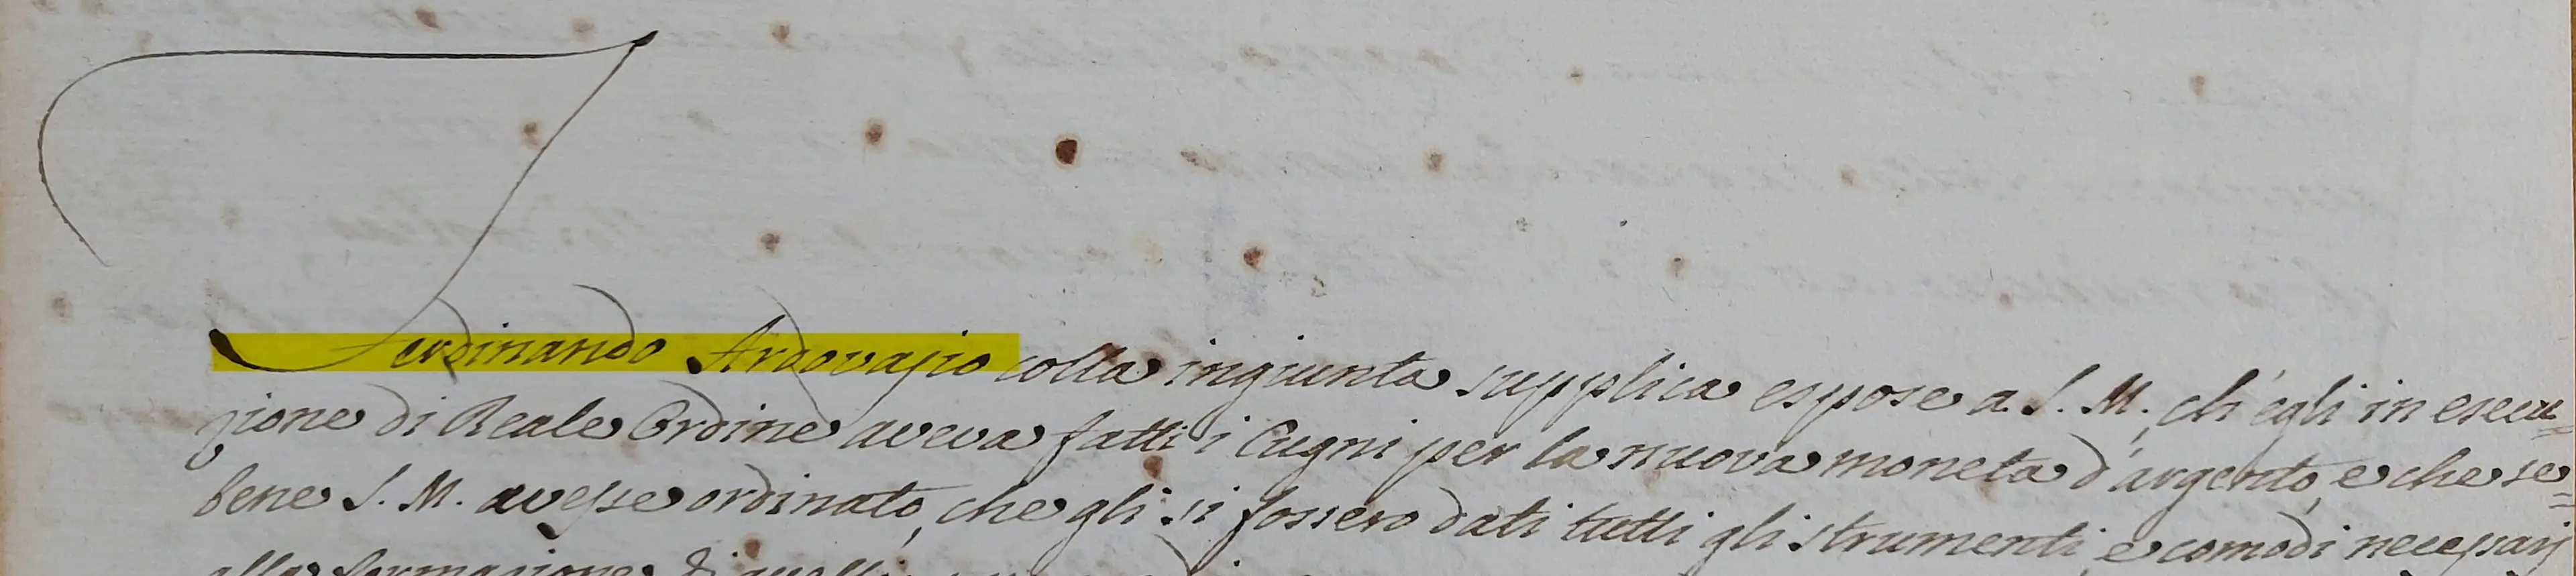 Ferdinando Ardovasio colla ingiunta supplica espose a S. M., ch'egli in esecu=
zione di Reale Ordine aveva fatti i Cugni per la nuova moneta d'argento, e che se=
bene S. M. avesse ordinato, che gli si fossero dati tutti gli strumenti, e comodi necessarj
alla formazione di quelli